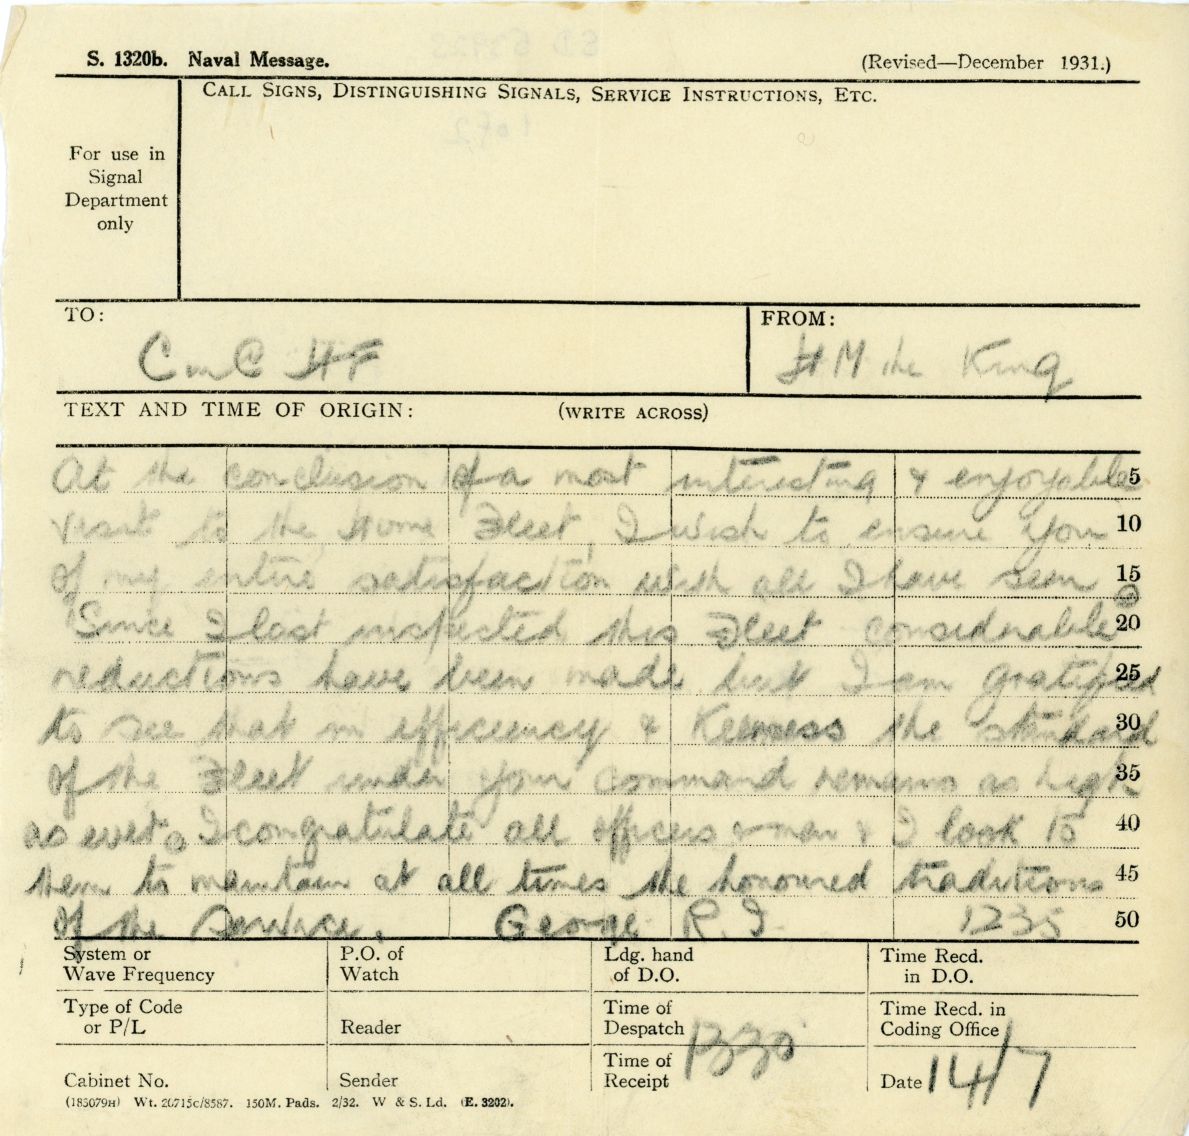 S. 1320b. Naval Message. (Revised—December 1931.)
CALL SIGNS, DISTINGUISHING SIGNALS, SERVICE INSTRUCTIONS, ETC.
For use in
Signal
Department
only
TO: FROM:
C in C HF H M the King
TEXT AND TIME OF ORIGIN: (WRITE ACROSS)
At the conclusion of a most interesting & enjoyable 5
visit to the Home Fleet, I wish to ensure you 10
of my entire satisfaction with all I have seen 15
Since I last inspected this Fleet considerable 20
reductions have been made but I am gratified 25
to see that in efficiency & Keenness the standard 30
of the Fleet under your command remains as high 35
as ever. I congratulate all officers & men & I look to 40
them to maintain at all times the honoured traditions 45
of the Service. George R.I 1235 50
System or P.O. of Ldg. hand Time Recd.
Wave Frequency Watch of D.O. in D.O.
Type of Code Time of Time Recd. in
or P/L Reader Despatch 1330 Coding Office
Time of
Cabinet No. Sender Receipt Date 14/7
(185079H) Wt. 26715c/8587. 150M. Pads. 2/32. W & S. Ld. (E. 3202).